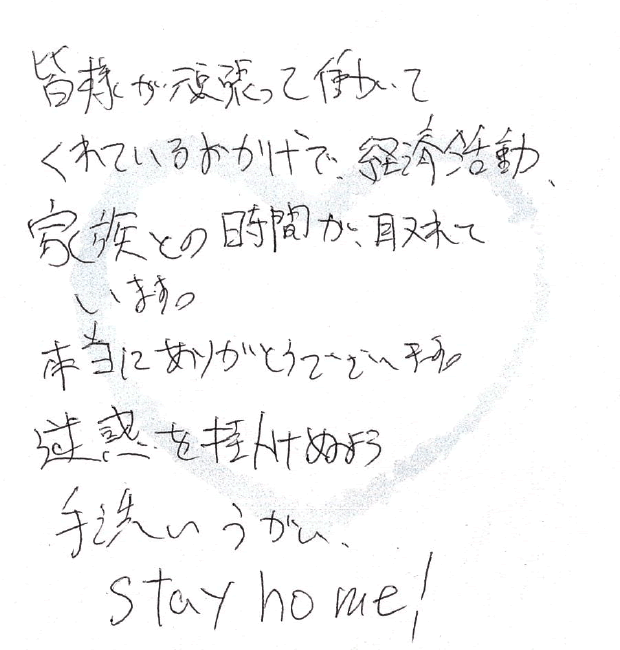 皆様が頑張って働いて
くれているおかげで、経済活動、
家族との時間が、取れて
います。
本当にありがとうございます。
迷惑を掛けぬよう
手洗いうがい、
stay home!